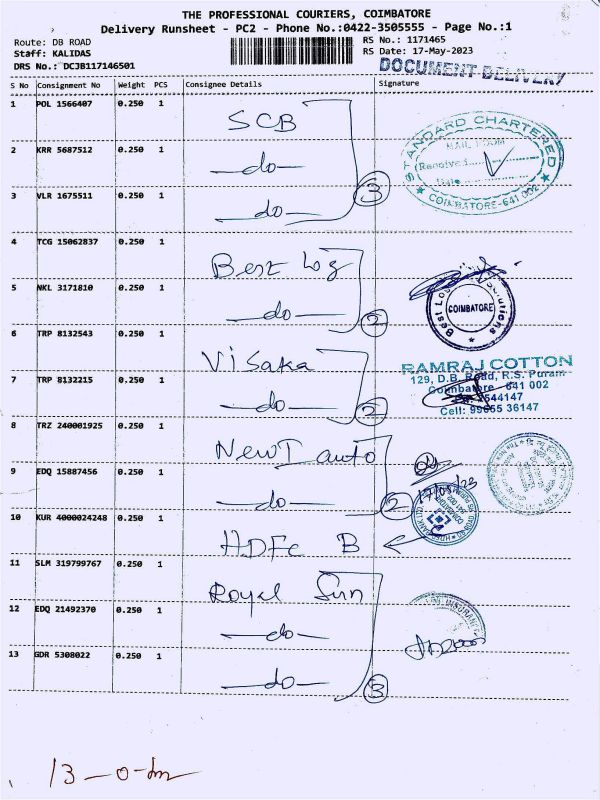 THE PROFESSIONAL COURIERS, COIMBATORE
Delivery Runsheet - PC2 - Phone No.:0422-3505555 - Page No.:1
Route: DB ROAD
Staff: KALIDAS
DRS No.: DCJB117146501
RS No.: 1171465
RS Date: 17-May-2023
DOCUMENT DELIVERY
S No Consignment No Weight PCS Consignee Details Signature
1 POL 1566407 0.250 1 SCB
2 KRR 5687512 0.250 1 —do—
3 VLR 1675511 0.250 1 —do— 3
STANDARD CHARTERED
MAIL ROOM
Received
Date
COIMBATORE-641 002
4 TCG 15062837 0.250 1 Best Log
5 NKL 3171810 0.250 1 —do— 2
Best Lo
COIMBATORE
6 TRP 8132543 0.250 1 Visaka
7 TRP 8132215 0.250 1 —do— 2
RAMRAJ COTTON
129, D.B. Road, R.S. Puram
Coimbatore 641 002
2544147
Cell: 99655 36147
8 TRZ 240001925 0.250 1 NewT auto
9 EDQ 15887456 0.250 1 —do— 2
17/05/23
10 KUR 4000024248 0.250 1 HDFC B
11 SLM 319799767 0.250 1 Royal Sun
12 EDQ 21492370 0.250 1 —do—
INSURANCE
13 GDR 5308022 0.250 1 —do— 3
13 —0—